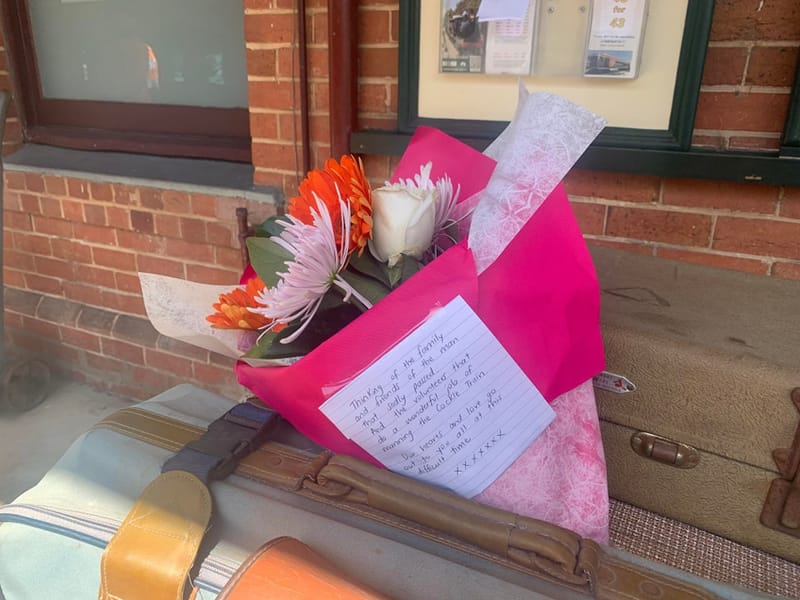 for
43
Thinking of the family
and friends of the man
that sadly passed.
And the volunteers that
do a wonderful job of
manning the Cockle Train.
Our hearts and love go
out to you all at this
difficult time.
xxxxxxx